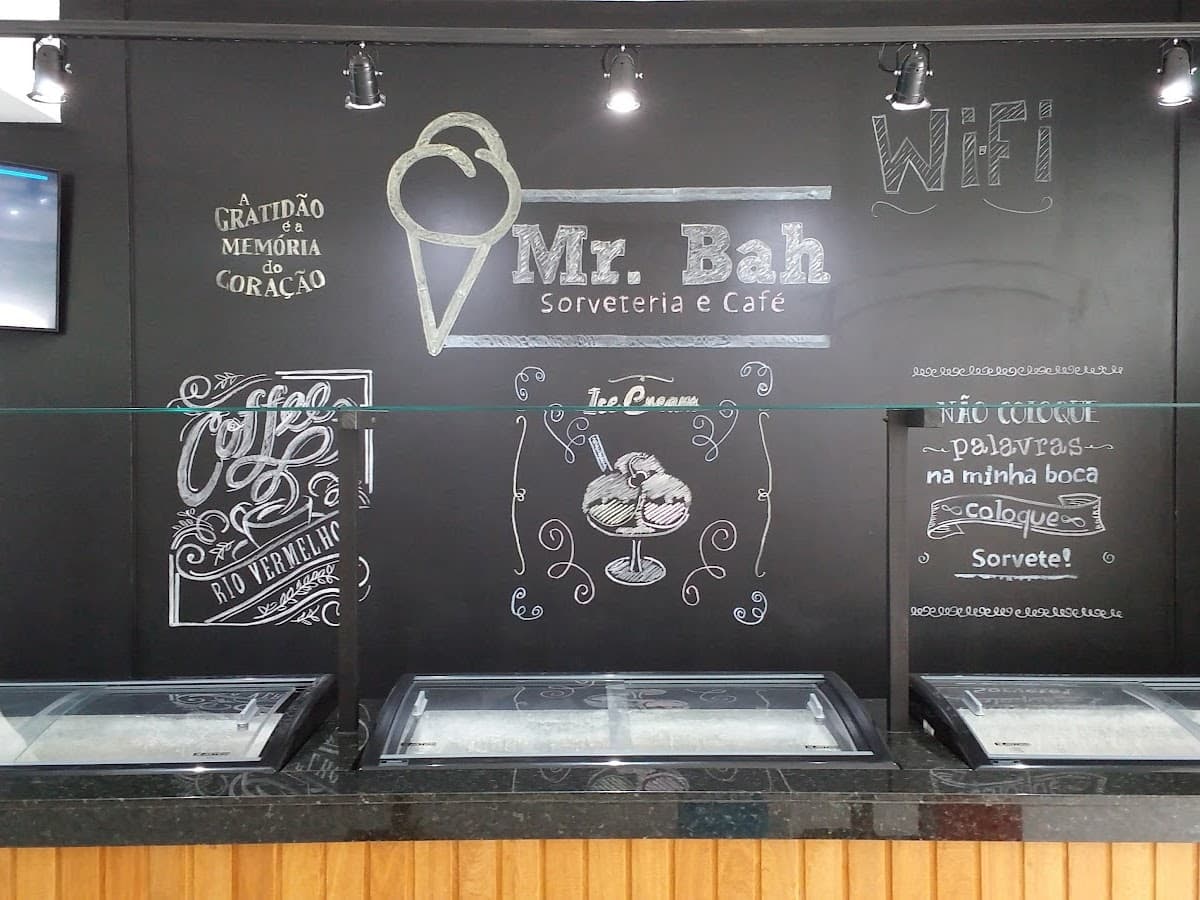 WiFi
A
GRATIDÃO
é a
MEMÓRIA
do
CORAÇÃO
Mr. Bah
Sorveteria e Café
Coffee
RIO VERMELHO
Ice Cream
NÃO COLOQUE
palavras
na minha boca
coloque
Sorvete!